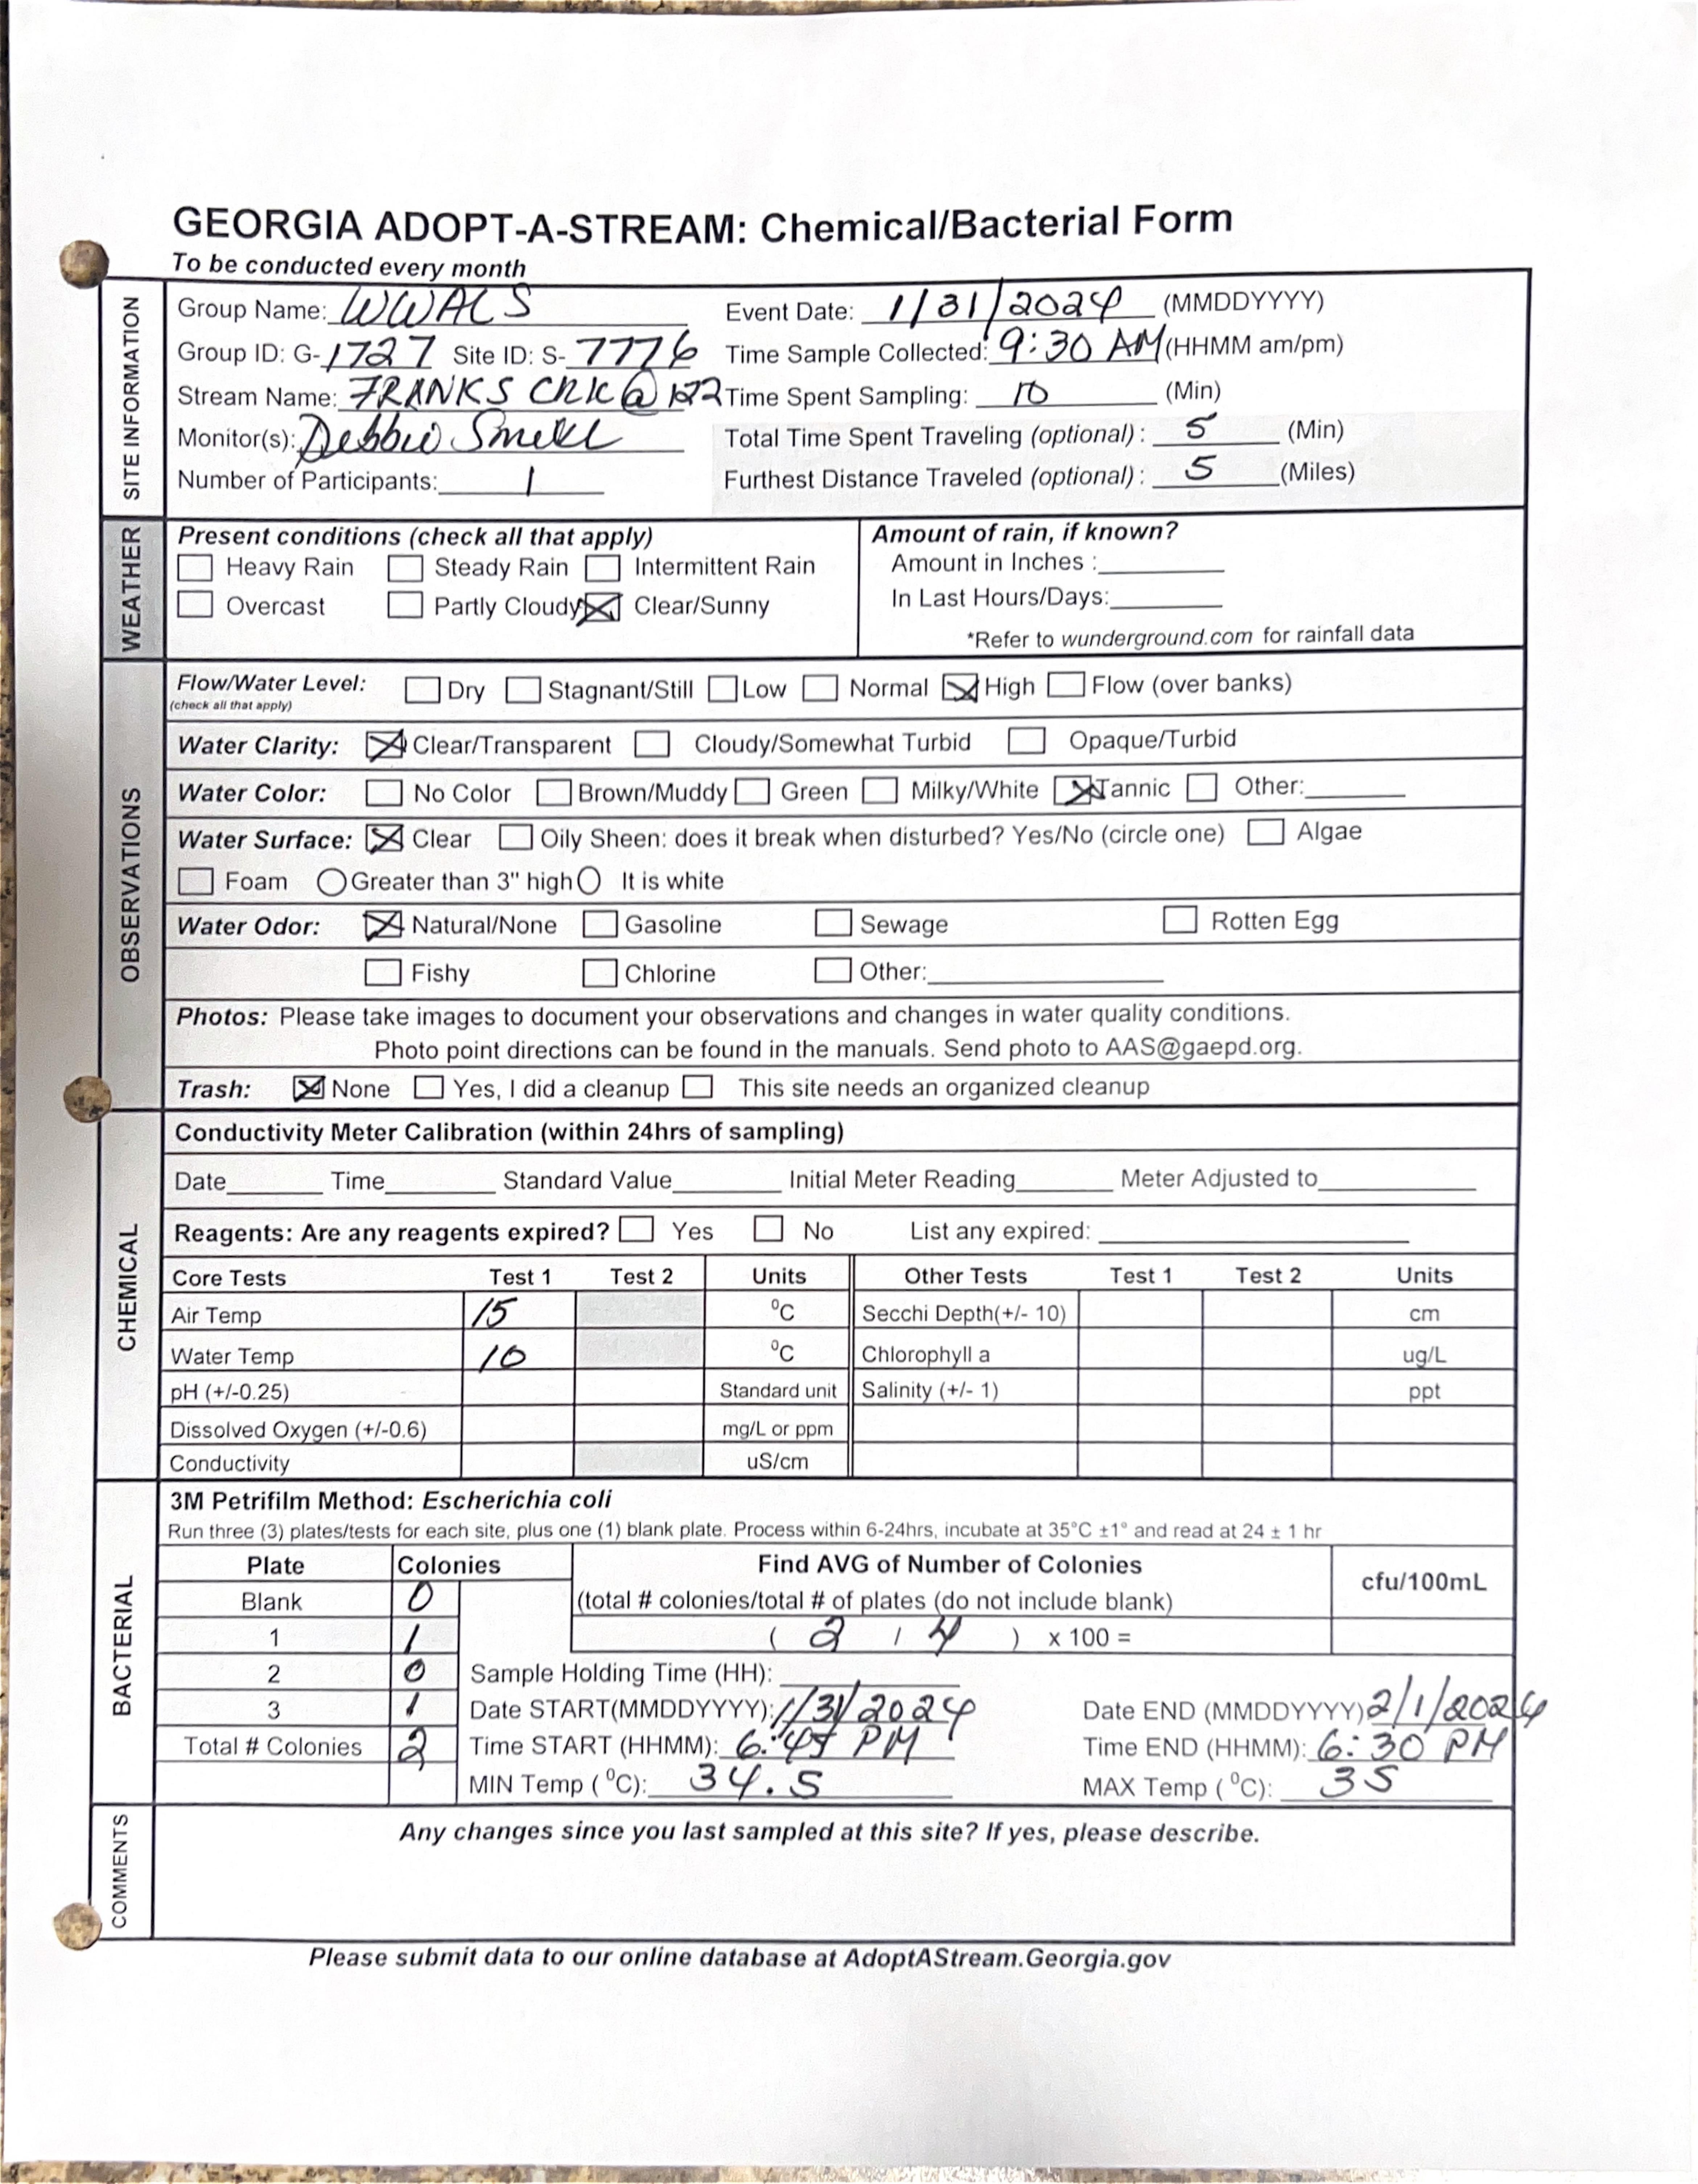 GEORGIA ADOPT-A-STREAM: Chemical/Bacterial Form
To be conducted every month
SITE INFORMATION
Group Name: WWALS Event Date: 1/31/2024 (MMDDYYYY)
Group ID: G-1727 Site ID: S-7776 Time Sample Collected: 9:30 AM (HHMM am/pm)
Stream Name: FRANKS CRK @ 122 Time Spent Sampling: 10 (Min)
Monitor(s): Debbie Total Time Spent Traveling (optional) : 5 (Min)
Number of Participants: 1 Furthest Distance Traveled (optional) : 5 (Miles)
WEATHER
Present conditions (check all that apply) Amount of rain, if known?
Heavy Rain Steady Rain Intermittent Rain Amount in Inches :
Overcast Partly Cloudy Clear/Sunny In Last Hours/Days:
*Refer to wunderground.com for rainfall data
OBSERVATIONS
Flow/Water Level: Dry Stagnant/Still Low Normal High Flow (over banks)
(check all that apply)
Water Clarity: Clear/Transparent Cloudy/Somewhat Turbid Opaque/Turbid
Water Color: No Color Brown/Muddy Green Milky/White Tannic Other:
Water Surface: Clear Oily Sheen: does it break when disturbed? Yes/No (circle one) Algae
Foam Greater than 3" high It is white
Water Odor: Natural/None Gasoline Sewage Rotten Egg
Fishy Chlorine Other:
Photos: Please take images to document your observations and changes in water quality conditions.
Photo point directions can be found in the manuals. Send photo to AAS@gaepd.org.
Trash: None Yes, I did a cleanup This site needs an organized cleanup
CHEMICAL
Conductivity Meter Calibration (within 24hrs of sampling)
Date Time Standard Value Initial Meter Reading Meter Adjusted to
Reagents: Are any reagents expired? Yes No List any expired:
Core Tests Test 1 Test 2 Units Other Tests Test 1 Test 2 Units
Air Temp 15 °C Secchi Depth(+/- 10) cm
Water Temp 10 °C Chlorophyll a ug/L
pH (+/-0.25) Standard unit Salinity (+/- 1) ppt
Dissolved Oxygen (+/-0.6) mg/L or ppm
Conductivity uS/cm
BACTERIAL
3M Petrifilm Method: Escherichia coli
Run three (3) plates/tests for each site, plus one (1) blank plate. Process within 6-24hrs, incubate at 35°C ±1° and read at 24 ± 1 hr
Plate Colonies Find AVG of Number of Colonies cfu/100mL
Blank 0 (total # colonies/total # of plates (do not include blank)
1 1 ( 2 / 4 ) x 100 =
2 0 Sample Holding Time (HH):
3 1 Date START(MMDDYYYY): 1/31/2024 Date END (MMDDYYYY) 2/1/2024
Total # Colonies 2 Time START (HHMM): 6:45 PM Time END (HHMM): 6:30 PM
MIN Temp (°C): 34.5 MAX Temp (°C): 35
COMMENTS
Any changes since you last sampled at this site? If yes, please describe.
Please submit data to our online database at AdoptAStream.Georgia.gov